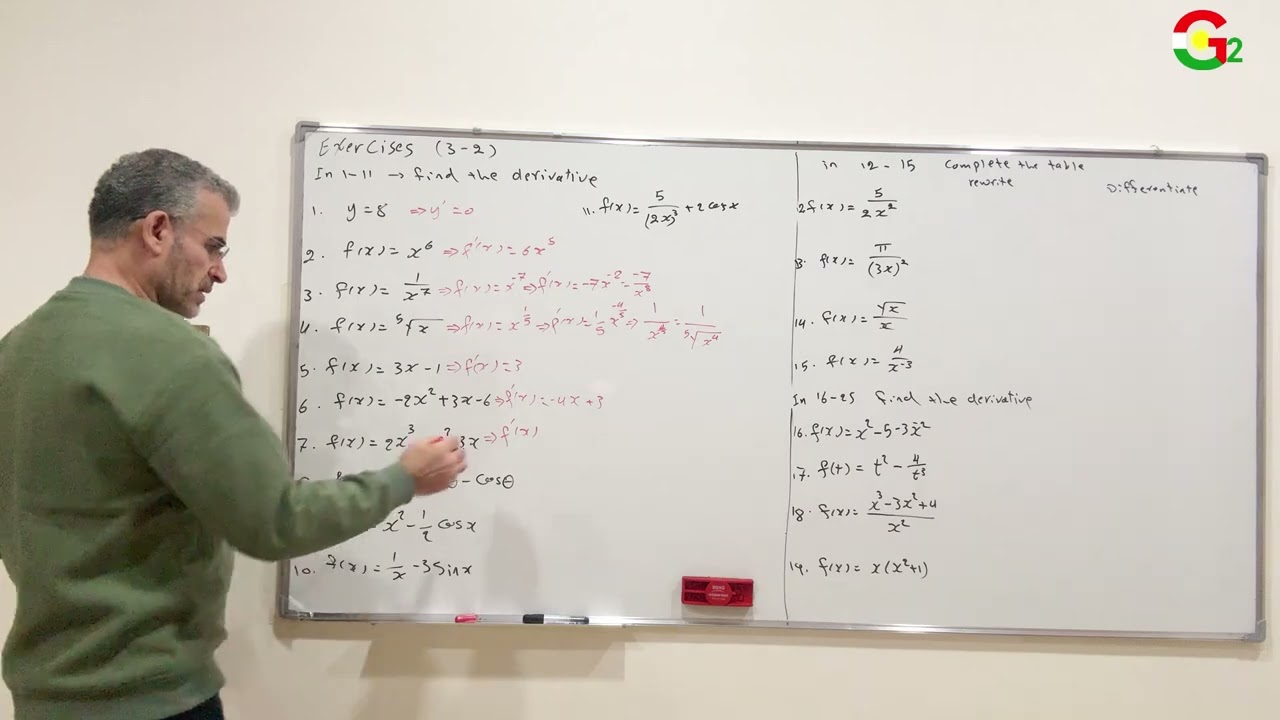 G2
Exercises (3-2)
In 1-11 → find the derivative
1. y=8 ⇒y'=0
11. f(x)= 5/(2x)³ +2cosx
2. f(x)= x⁶ ⇒f'(x)=6x⁵
3. f(x)= 1/x⁷ ⇒f(x)=x⁻⁷⇒f'(x)=-7x⁻²= -7/x⁸
4. f(x)= ⁵√x ⇒f(x)= x^(1/5) ⇒f'(x)= 1/5 x^(-4/5) ⇒ 1/x = 1/⁵√x⁴
5. f(x)= 3x-1⇒f'(x)=3
6. f(x)= -2x²+3x-6⇒f'(x)=-4x+3
7. f(x)= 2x³ ² 3x ⇒f'(x)
θ- cosθ
= x²- 1/2 cosx
10. f(x)= 1/x -3Sinx
in 12-15 Complete the table
rewrite Differentiate
2f(x)= 5/2x²
13. f(x)= π/(3x)²
14. f(x)= √x/x
15. f(x)= 4/x⁻³
In 16-25 find the derivative
16. f(x)=x²-5-3x⁻²
17. f(t)= t²- 4/t³
18. f(x)= x³-3x²+4/x²
19. f(x)= x(x²+1)